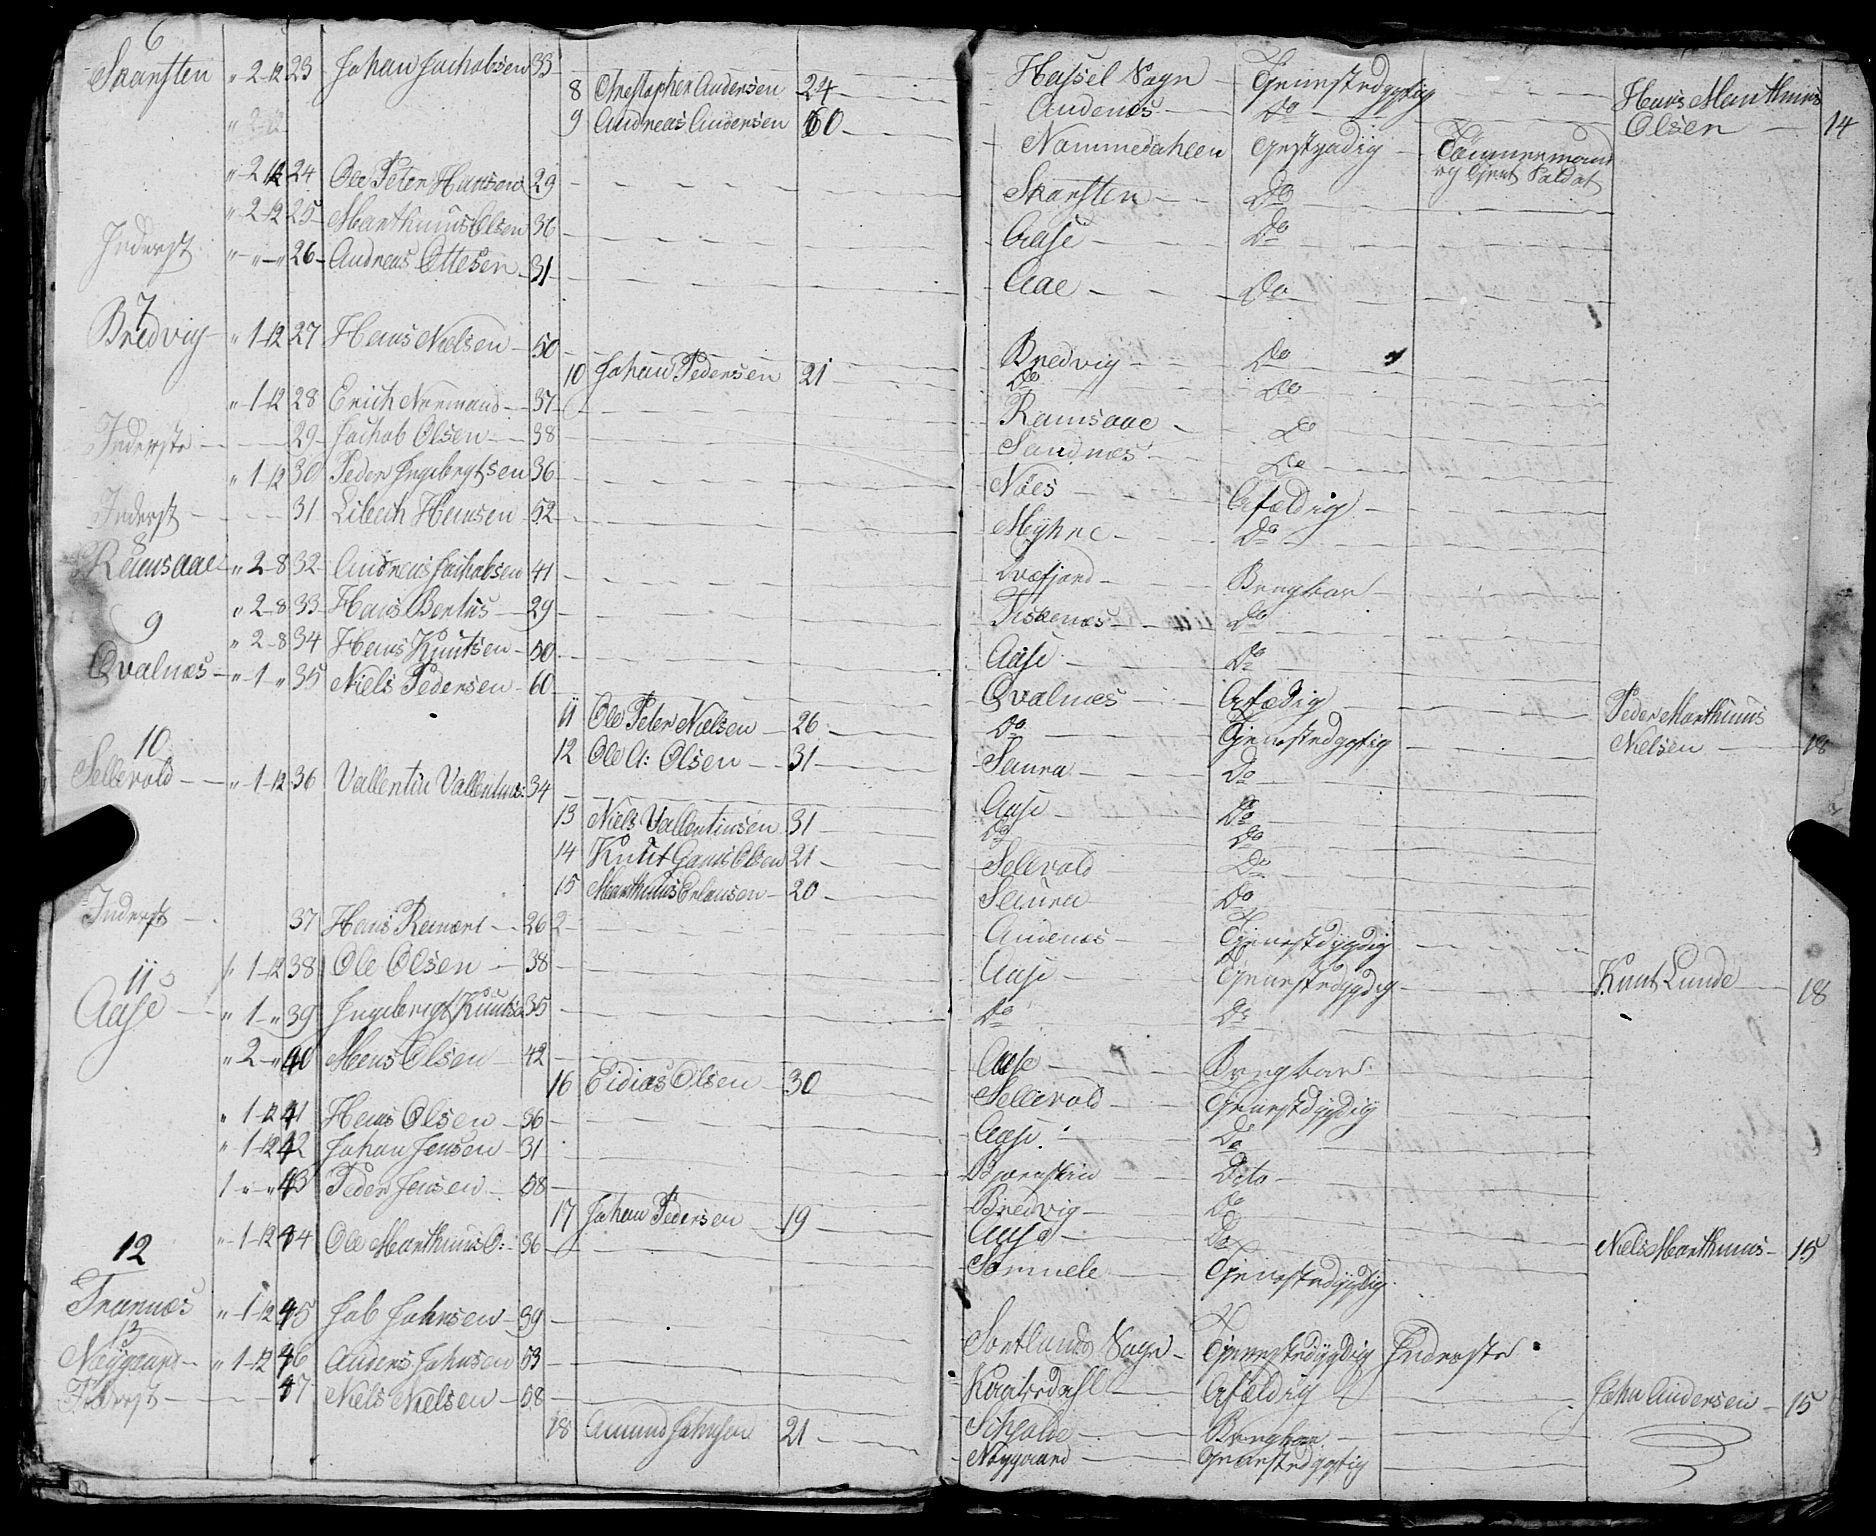 6
Skarsten „ 2-12 23 Johan Jachobsen 33
8 Chrestopher Andersen 24
„ 2-12 9 Andreas Andersen 60
„ 2-12 24 Ole Peter Hansen 29
„ 2-12 25 Marthinus Olsen 36
Inderst „-„-„ 26 Andreas Ottesen 31
7
Bredvig „ 1-12 27 Hans Nielsen 50
10 Johan Pedersen 21
„ 1-12 28 Erich Normand 37
Inderste 29 Jachob Olsen 38
„ 1-12 30 Peder Ingebrigtsen 36
Inderst 31 Hansen 52
8
Ramsaae „ 2-8 32 Andreas Jachobsen 41
„ 2-8 33 Hans Bentus 29
9
„ 2-8 34 Hans Knutsen 50
Qvalnæs „ 1 „ 35 Niels Pedersen 60
11 Ole Peter Nielsen 26
10
12 Ole A: Olsen 31
Sellevold „ 1-12 36 Vallentin Vallentins: 34
13 Niels Vallentinsen 31
14 Knut Olsen 21
15 Marthinus 20
Inderst 37 Hans 26 2
11
„ 1-12 38 Ole Olsen 38
Aase „ 1 „ 39 Ingebrigt Knuts: 35
„ 2 „ 40 Mons Olsen 42
16 Eidias Olsen 30
„ 1-12 41 Hans Olsen 36
„ 1-12 42 Johan Jensen 31
1 „ „ 43 Peder Jensen 58
17 Johan Pedersen 19
12
„ 1-12 44 Ole Marthinus O: 36
Tranæs „ 1-12 45 Job Johnsen 39
13
Nøygaard „ 1-12 46 Anders Johnsen 53
Inderst 47 Niels Nielsen 58
18 Amund Johnsen 21
Hassel Sogn Tjenestdygtig Hans Marthinus
Andenæs Do Olsen 14
Nommedahlen Tømmermand
og Soldat
Skarsten Do
Aase Do
Aae Do
Bredvig Do
Do Do
Ramsaae Do
Sandnæs Do
Noes Afældig
Myhre Do
Qvæfjord Brugbar
Do
Aase Do
Qvalnæs Afældig Peder Marthinus
Do Tjenestedygtig Nielsen 18
Saura Do
Aase Do
Do Do
Sellevold Do
Saura Do
Andenæs Tjenestdygdig
Aase Tjenestedygdig Knut Lunde 18
Do Do
Aase Brugbar
Sellevold Tjenestdygdig
Aase Do
Bjørnskin Dito
Bredvig Do
Aase Do Niels Marthinus 15
Sommele Tjenestedygdig
Sortlands Sogn Tjenestedygdig Inderste
Afældig John Andersen 15
Brugbar
Nøygaard Tjenestedygtig